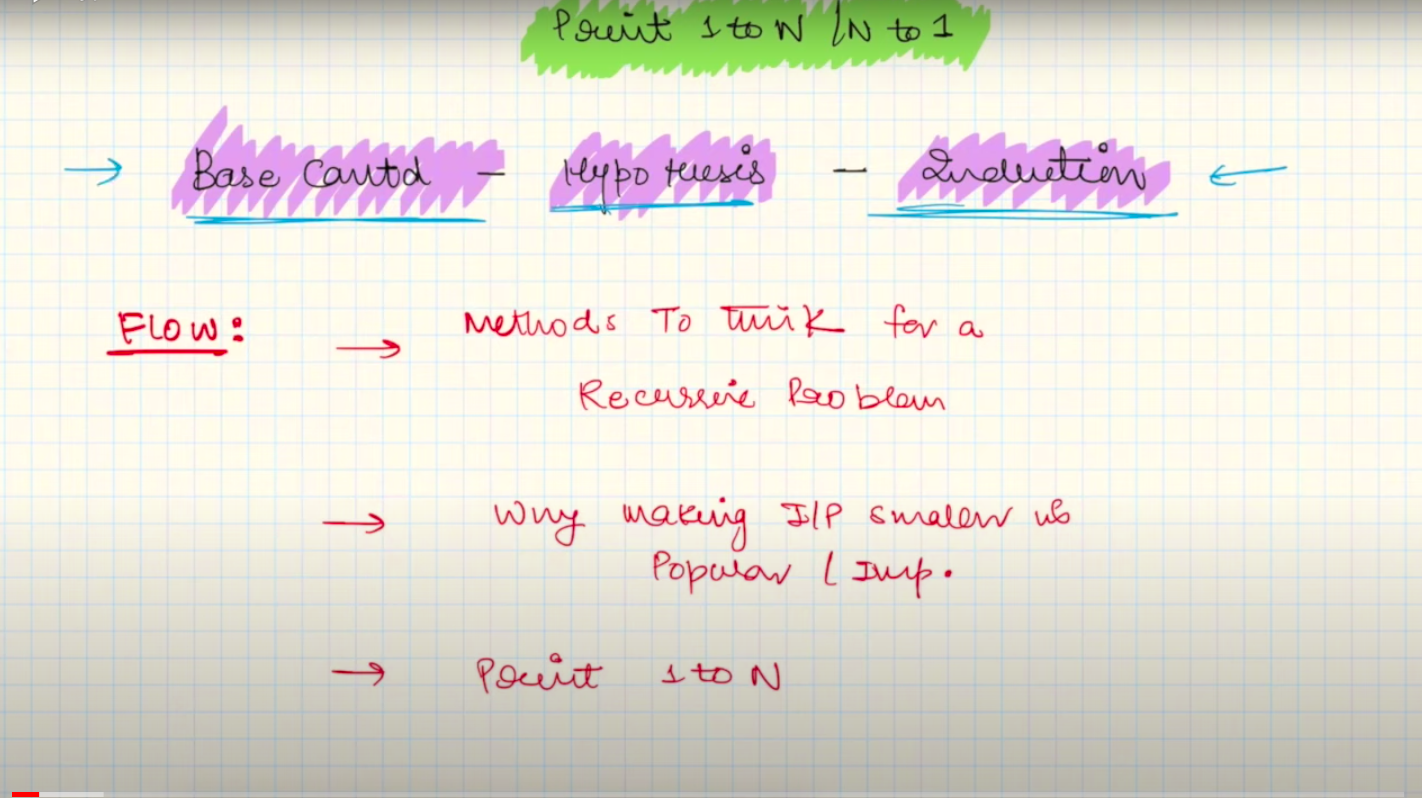 Print 1 to N / N to 1
→ Base Contd - Hypothesis - Induction ←
FLOW: → Methods To Think for a
Recursive Problem
→ Why making I/P smaller is
Popular / Imp.
→ Print 1 to N